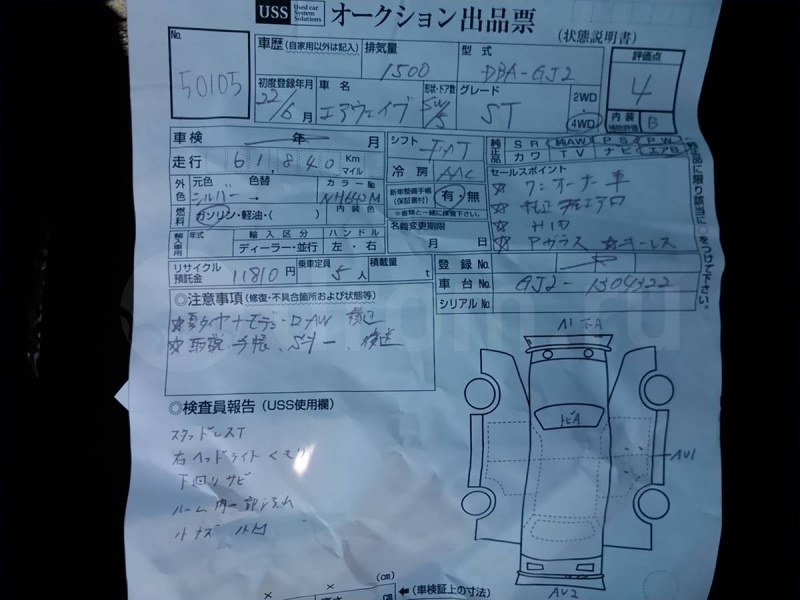 USS Used car System Solutions オークション出品票
(状態説明書)
No. 50105
車歴 (自家用以外は記入) 排気量 1500 型式 DBA-GJ2
評価点 4
内装 補助評価 B
初度登録年月 22/6月 車名 エアウェイブ 形状・ドア数 SW/5 グレード ST 2WD・4WD
車検 年 月 シフト FAT
純正品 SR 純AW PS PW カワ TV ナビ エアB
純正品に限り該当に○をつけて下さい。
走行 61,840 Km マイル 冷房 AAC
セールスポイント
☆ ワンオーナー車
☆ 純正エアロ
☆ HID
☆ Pガラス ☆キーレス
外色 元色 シルバー 色替 → カラーNo NH642M
新車整備手帳(保証書付) 有・無
※書類と一緒に保管下さい。
燃料 ガソリン・軽油・( ) 内装色
名義変更期限 月 日
輸入車用 年式 輸入区分 ディーラー・並行 ハンドル 左・右
リサイクル預託金 11810円 乗車定員 5人 積載量 t
登録No.
車台No. GJ2-1304322
シリアルNo.
◎注意事項(修復・不具合箇所および状態等)
☆夏タイヤ+モデューロAW 後送
☆取説、手帳、Sキー 後送
◎検査員報告(USS使用欄)
スタッドレスT
右ヘッドライトくもり
下回りサビ
ルーム内一部汚れ
小キズ 小凹
トビA
AU1
AU2
(cm)
←(車検証上の寸法)